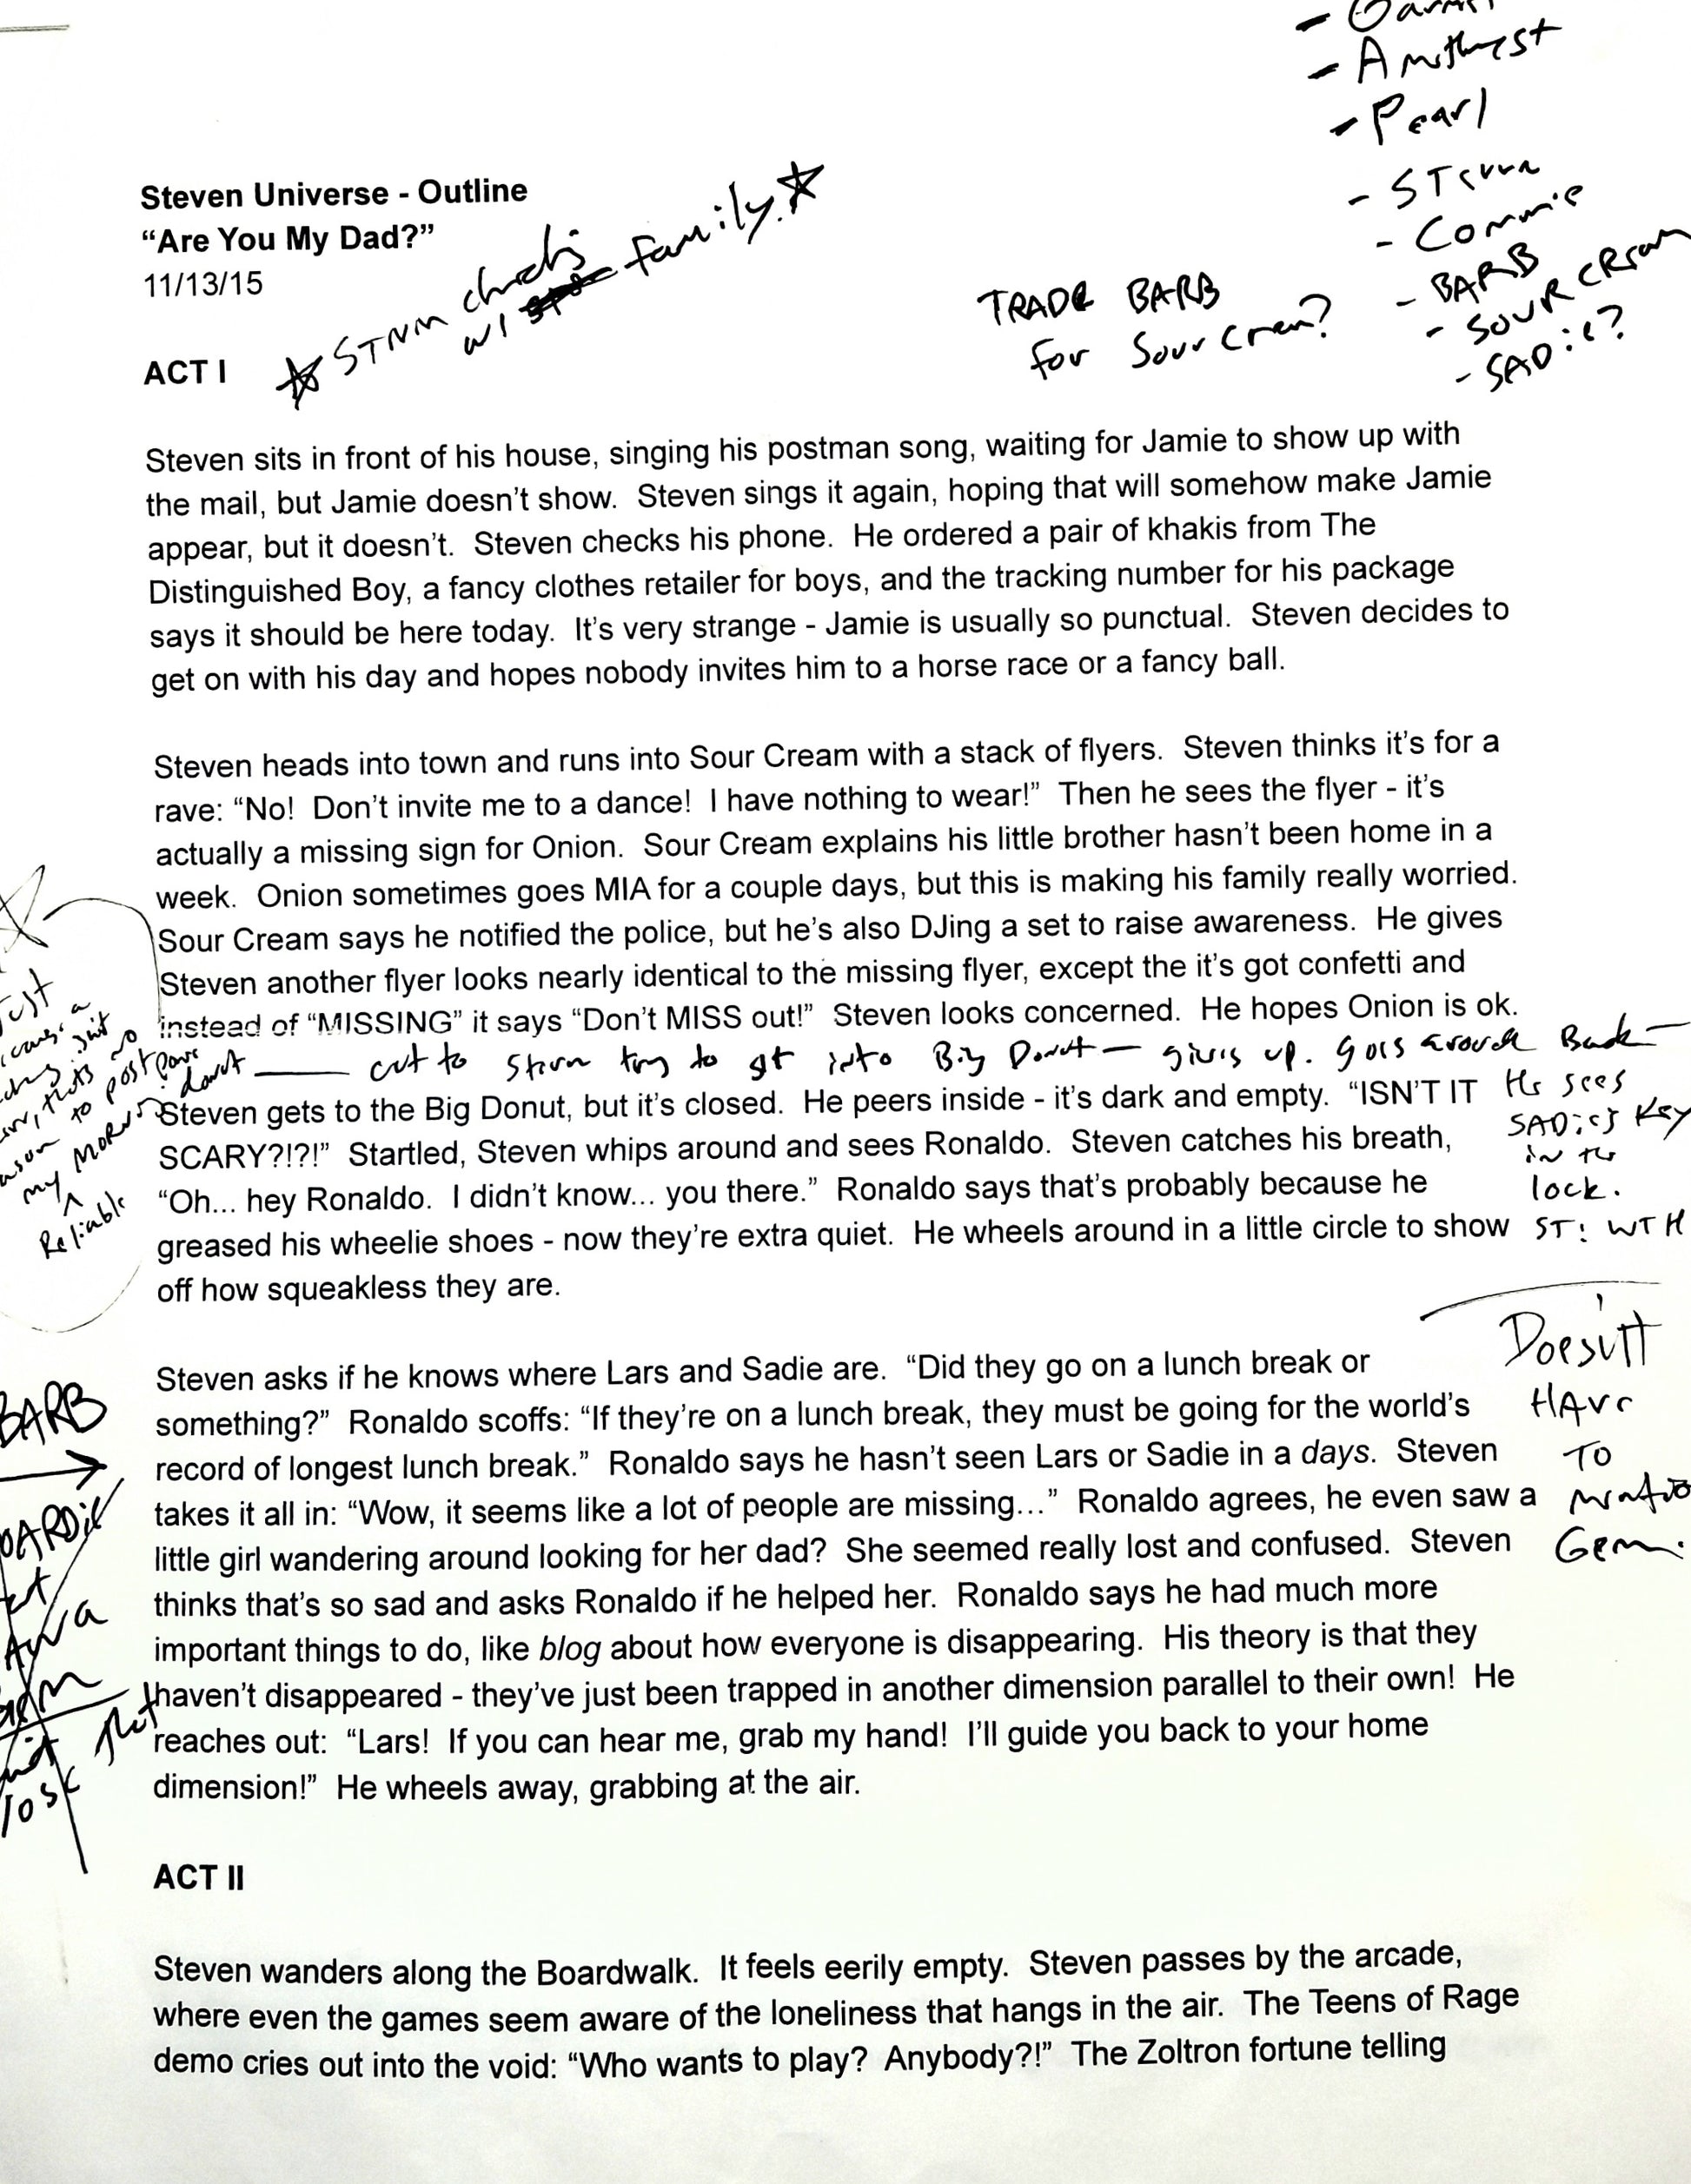 - Amethyst
- Pearl
- STeven
- Connie
- BARB
- SOUR CReam
- SADie?
Steven Universe - Outline
“Are You My Dad?”
11/13/15
☆ STeven checks
w/ family. ☆
TRADe BARB
for Sour Cream?
ACT I
Steven sits in front of his house, singing his postman song, waiting for Jamie to show up with
the mail, but Jamie doesn’t show.  Steven sings it again, hoping that will somehow make Jamie
appear, but it doesn’t.  Steven checks his phone.  He ordered a pair of khakis from The
Distinguished Boy, a fancy clothes retailer for boys, and the tracking number for his package
says it should be here today.  It’s very strange - Jamie is usually so punctual.  Steven decides to
get on with his day and hopes nobody invites him to a horse race or a fancy ball.
Steven heads into town and runs into Sour Cream with a stack of flyers.  Steven thinks it’s for a
rave: “No!  Don’t invite me to a dance!  I have nothing to wear!”  Then he sees the flyer - it’s
actually a missing sign for Onion.  Sour Cream explains his little brother hasn’t been home in a
week.  Onion sometimes goes MIA for a couple days, but this is making his family really worried.
Sour Cream says he notified the police, but he’s also DJing a set to raise awareness.  He gives
Steven another flyer looks nearly identical to the missing flyer, except the it’s got confetti and
instead of “MISSING” it says “Don’t MISS out!”  Steven looks concerned.  He hopes Onion is ok.
to postpone
my MORNing donut
Reliable
cut to Steven trying to get into Big Donut — gives up. goes around Back —
He sees
SADie's Key
in the
lock.
ST: WTH
Steven gets to the Big Donut, but it’s closed.  He peers inside - it’s dark and empty.  “ISN’T IT
SCARY?!?!”  Startled, Steven whips around and sees Ronaldo.  Steven catches his breath,
“Oh... hey Ronaldo.  I didn’t know... you there.”  Ronaldo says that’s probably because he
greased his wheelie shoes - now they’re extra quiet.  He wheels around in a little circle to show
off how squeakless they are.
Doesn't
HAve
TO
mention
Gem.
BARB
Steven asks if he knows where Lars and Sadie are.  “Did they go on a lunch break or
something?”  Ronaldo scoffs: “If they’re on a lunch break, they must be going for the world’s
record of longest lunch break.”  Ronaldo says he hasn’t seen Lars or Sadie in a days.  Steven
takes it all in: “Wow, it seems like a lot of people are missing...”  Ronaldo agrees, he even saw a
little girl wandering around looking for her dad?  She seemed really lost and confused.  Steven
thinks that’s so sad and asks Ronaldo if he helped her.  Ronaldo says he had much more
important things to do, like blog about how everyone is disappearing.  His theory is that they
haven’t disappeared - they’ve just been trapped in another dimension parallel to their own!  He
reaches out:  “Lars!  If you can hear me, grab my hand!  I’ll guide you back to your home
dimension!”  He wheels away, grabbing at the air.
ACT II
Steven wanders along the Boardwalk.  It feels eerily empty.  Steven passes by the arcade,
where even the games seem aware of the loneliness that hangs in the air.  The Teens of Rage
demo cries out into the void: “Who wants to play?  Anybody?!”  The Zoltron fortune telling